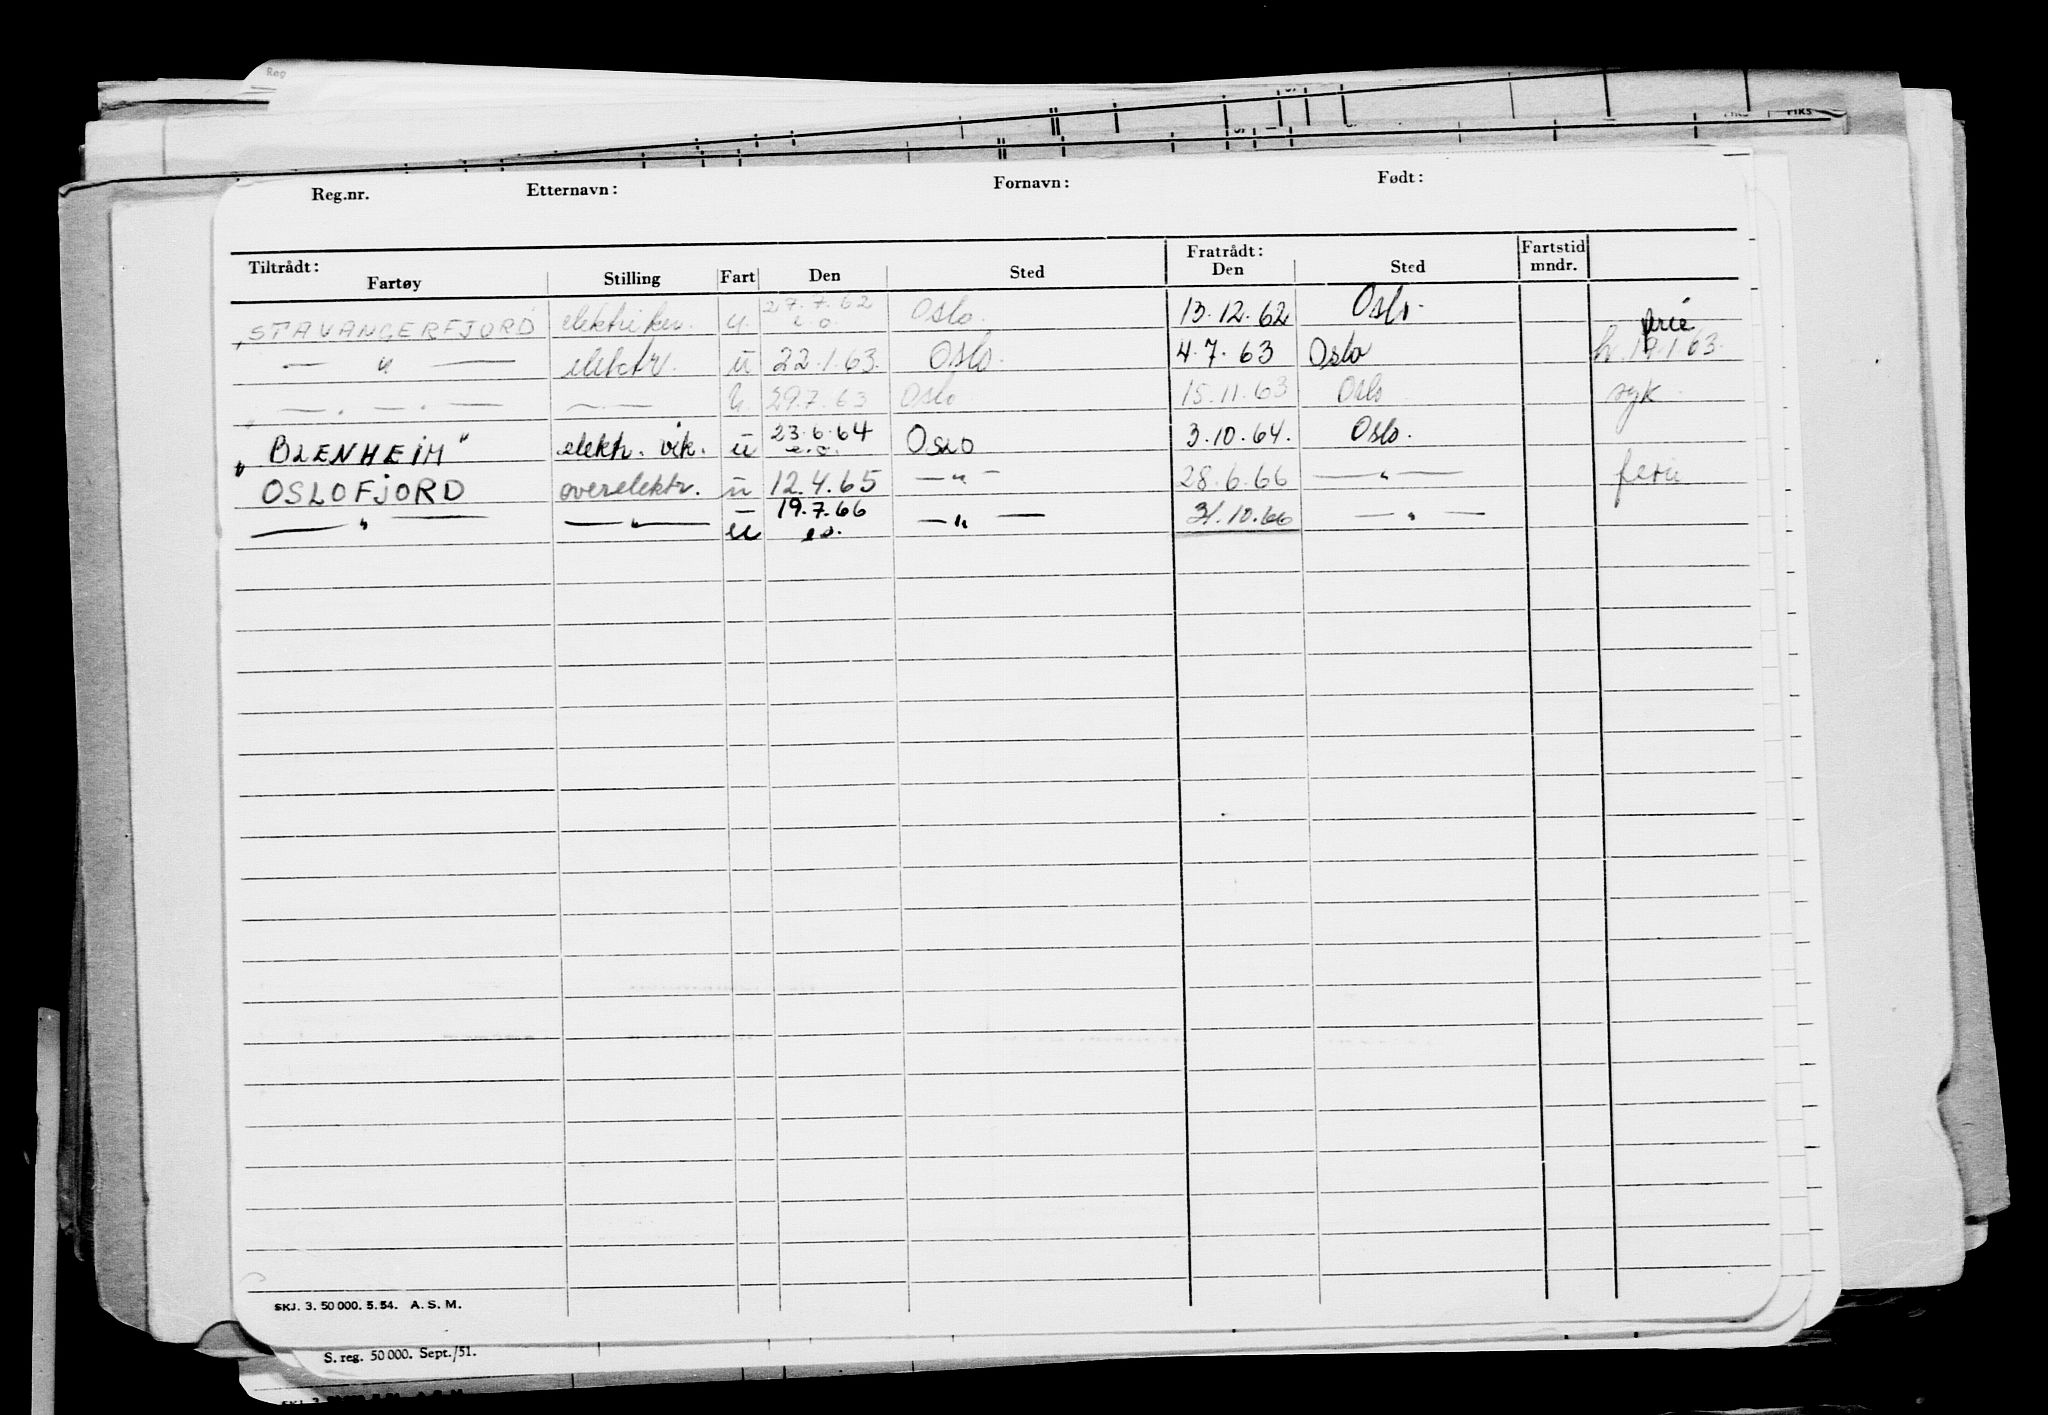 Reg
FIKS FIKS
Reg.nr. Etternavn: Fornavn: Født:
Tiltrådt: Fratrådt: Fartstid
Fartøy Stilling Fart Den Sted Den Sted mndr.
"STAVANGERFJORD elektriker. u. 27.7.62 e.o. Oslo. 13.12.62 Oslo. ferie
— " — elektr. u 22.1.63. Oslo. 4.7.63 Oslo h. 19.1.63.
— . — . — — . — u 29.7.63 Oslo 15.11.63 Oslo syk.
"BLENHEIM" elektr. vik. u 23.6.64 e.o. Oslo 3.10.64. Oslo.
OSLOFJORD overelektr. u 12.4.65 — " — 28.6.66 — " — ferie
— " — — " — u 19.7.66 e.o. — " — 31.10.66 — " —
SKJ. 3. 50 000. 5.54. A. S. M.
S. reg. 50 000. Sept./51.